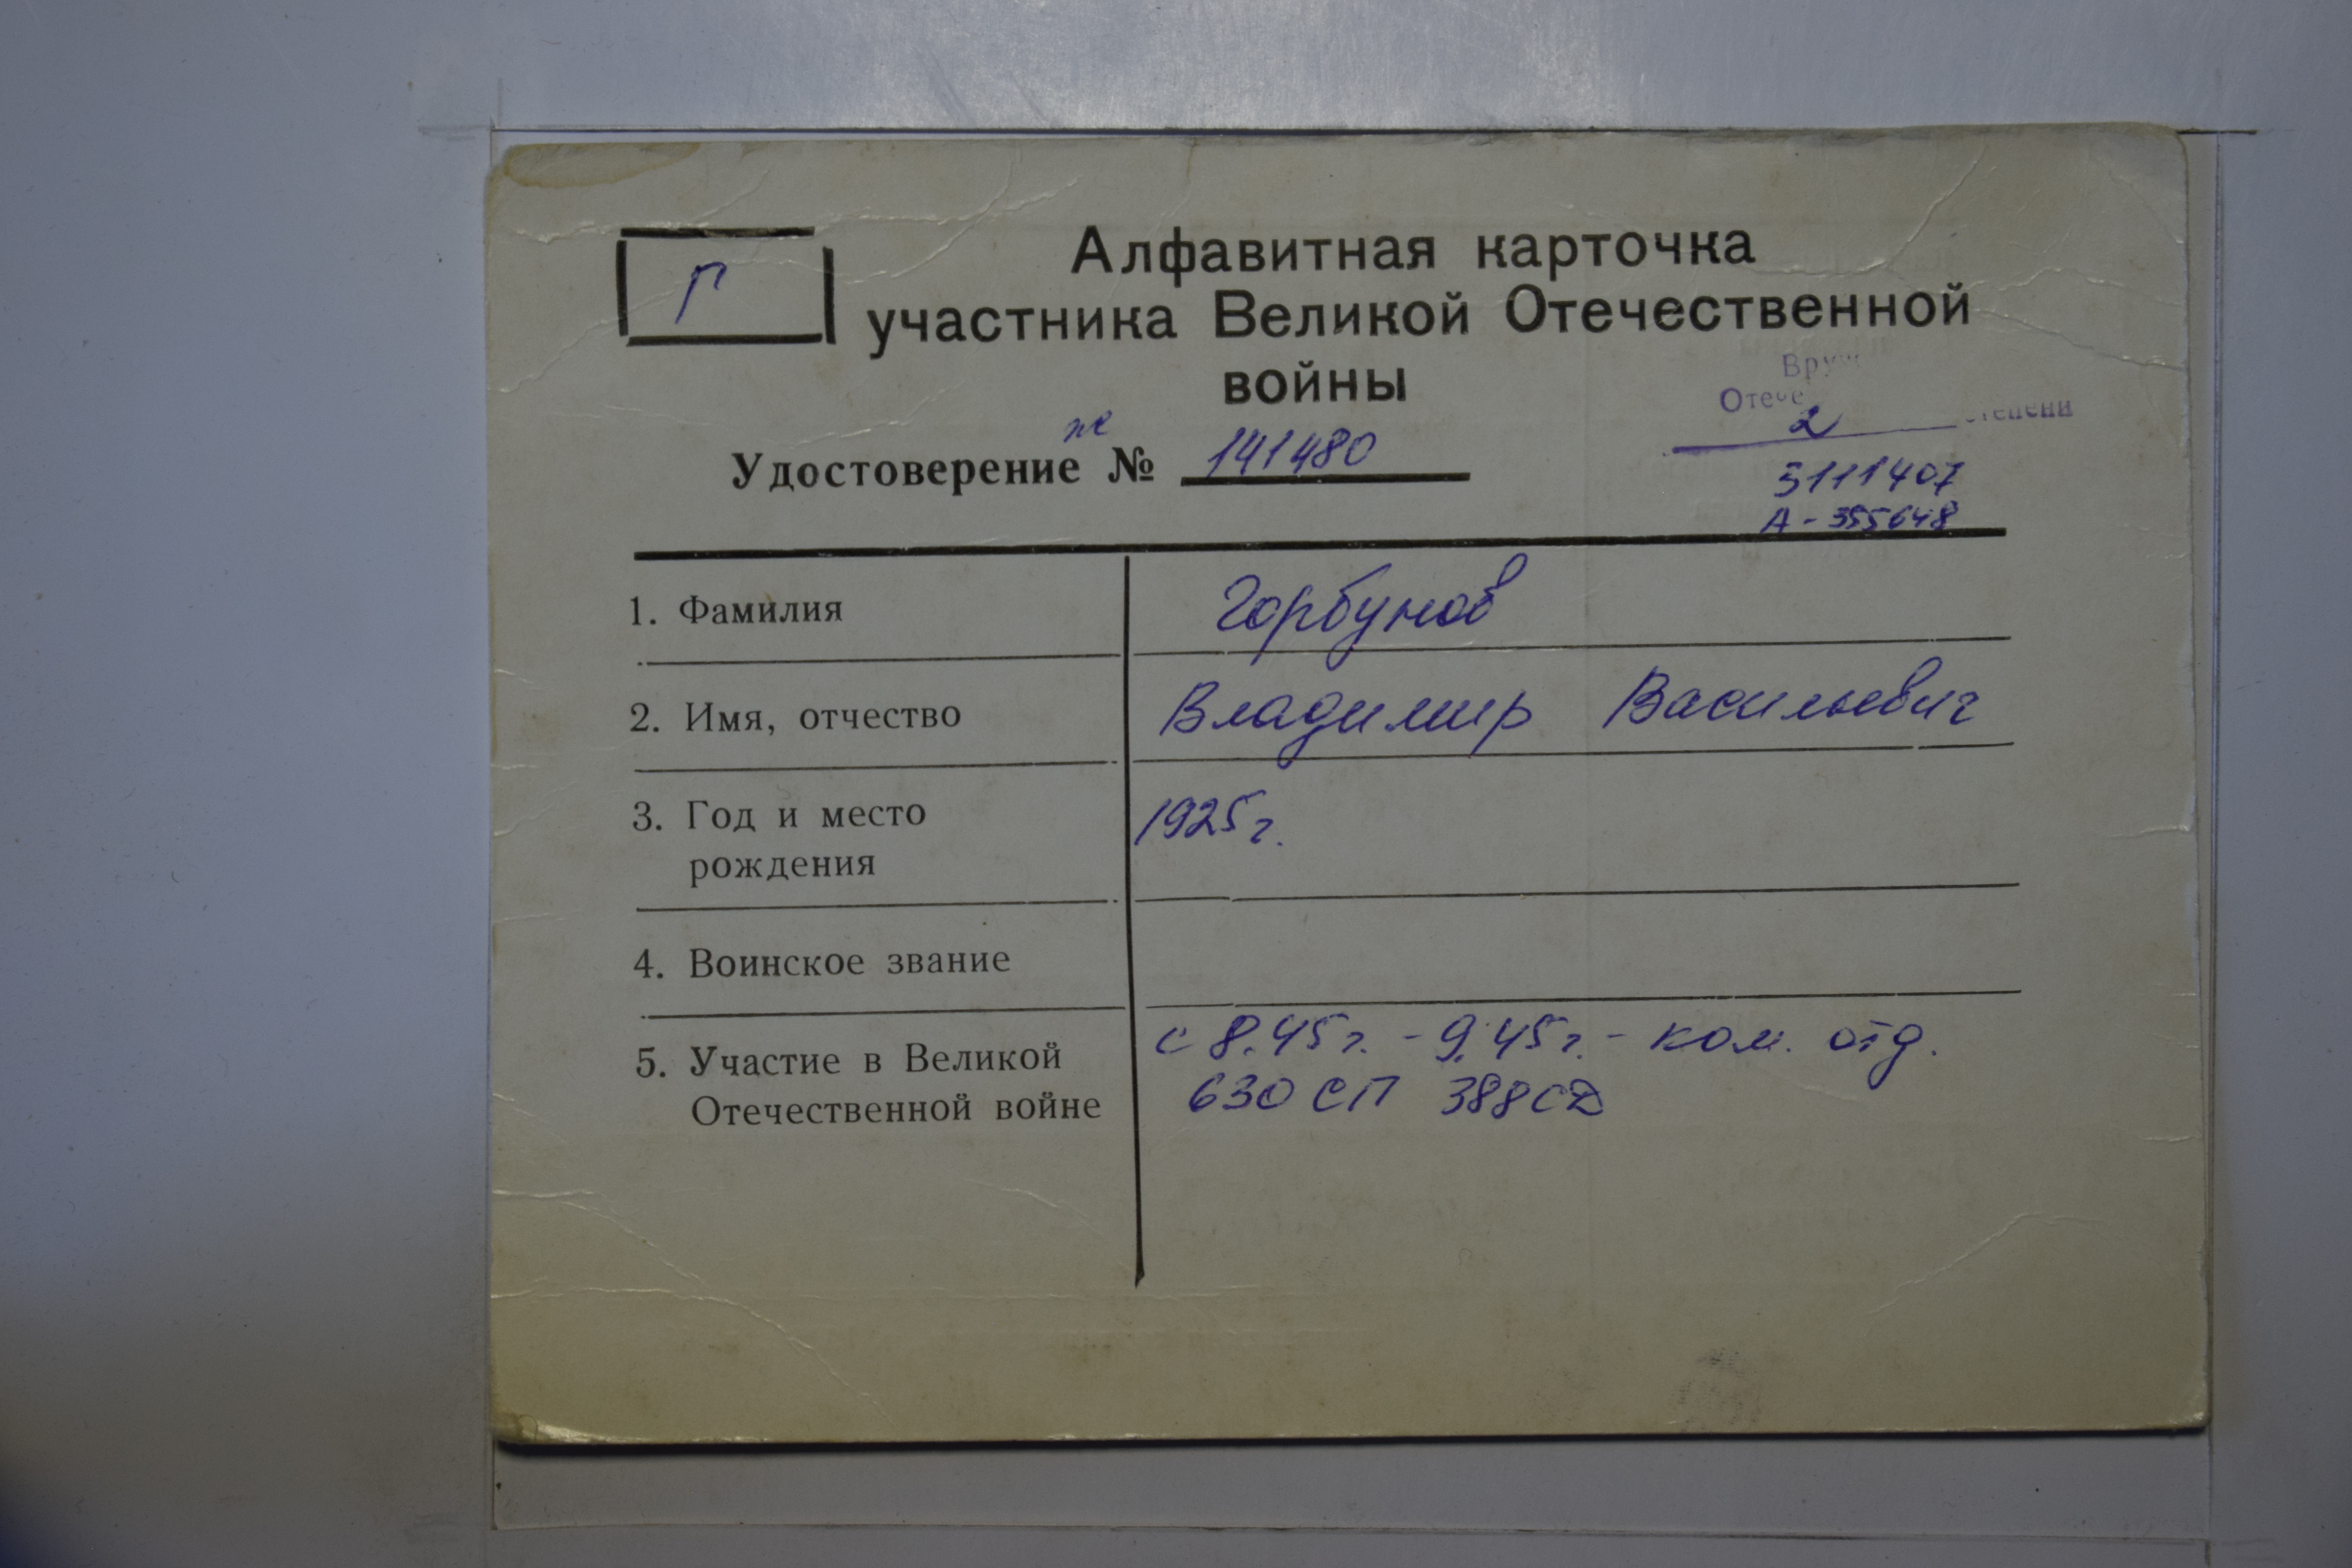 Г
Алфавитная карточка
участника Великой Отечественной
войны
Отече
2 степени
Удостоверение № 141480
3111407
А - 355648
1. Фамилия Горбунов
2. Имя, отчество Владимир Васильевич
3. Год и место 1925г.
рождения
4. Воинское звание
5. Участие в Великой с 8.45г. - 9.45г. - ком. отд.
Отечественной войне 630 СП 388 СД